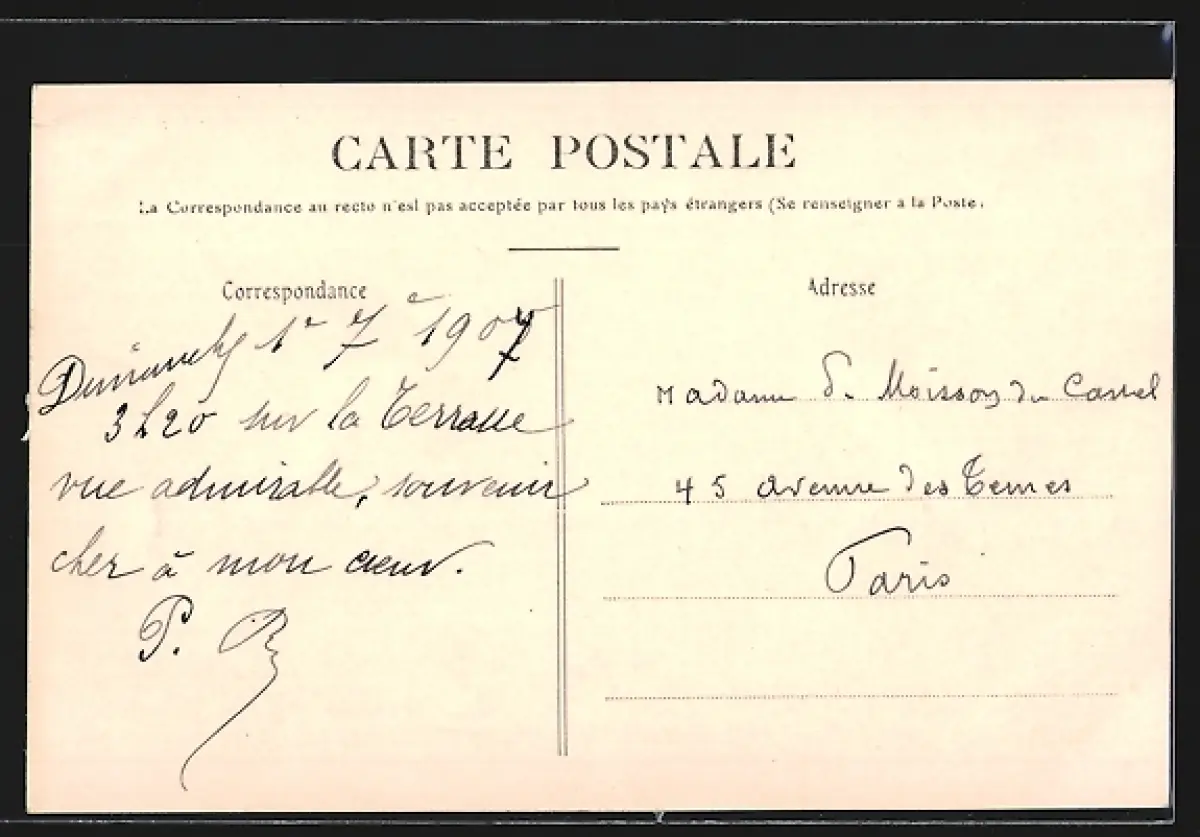 CARTE POSTALE
La Correspondance au recto n'est pas acceptée par tous les pays étrangers (Se renseigner à la Poste.
Correspondance
Adresse
Dimanche 1er 7e 1907
3h20 sur la Terrasse
vue admirable, souvenir
cher à mon cœur.
P. R
Madame de Moisson du Cassel
45 avenue des Ternes
Paris